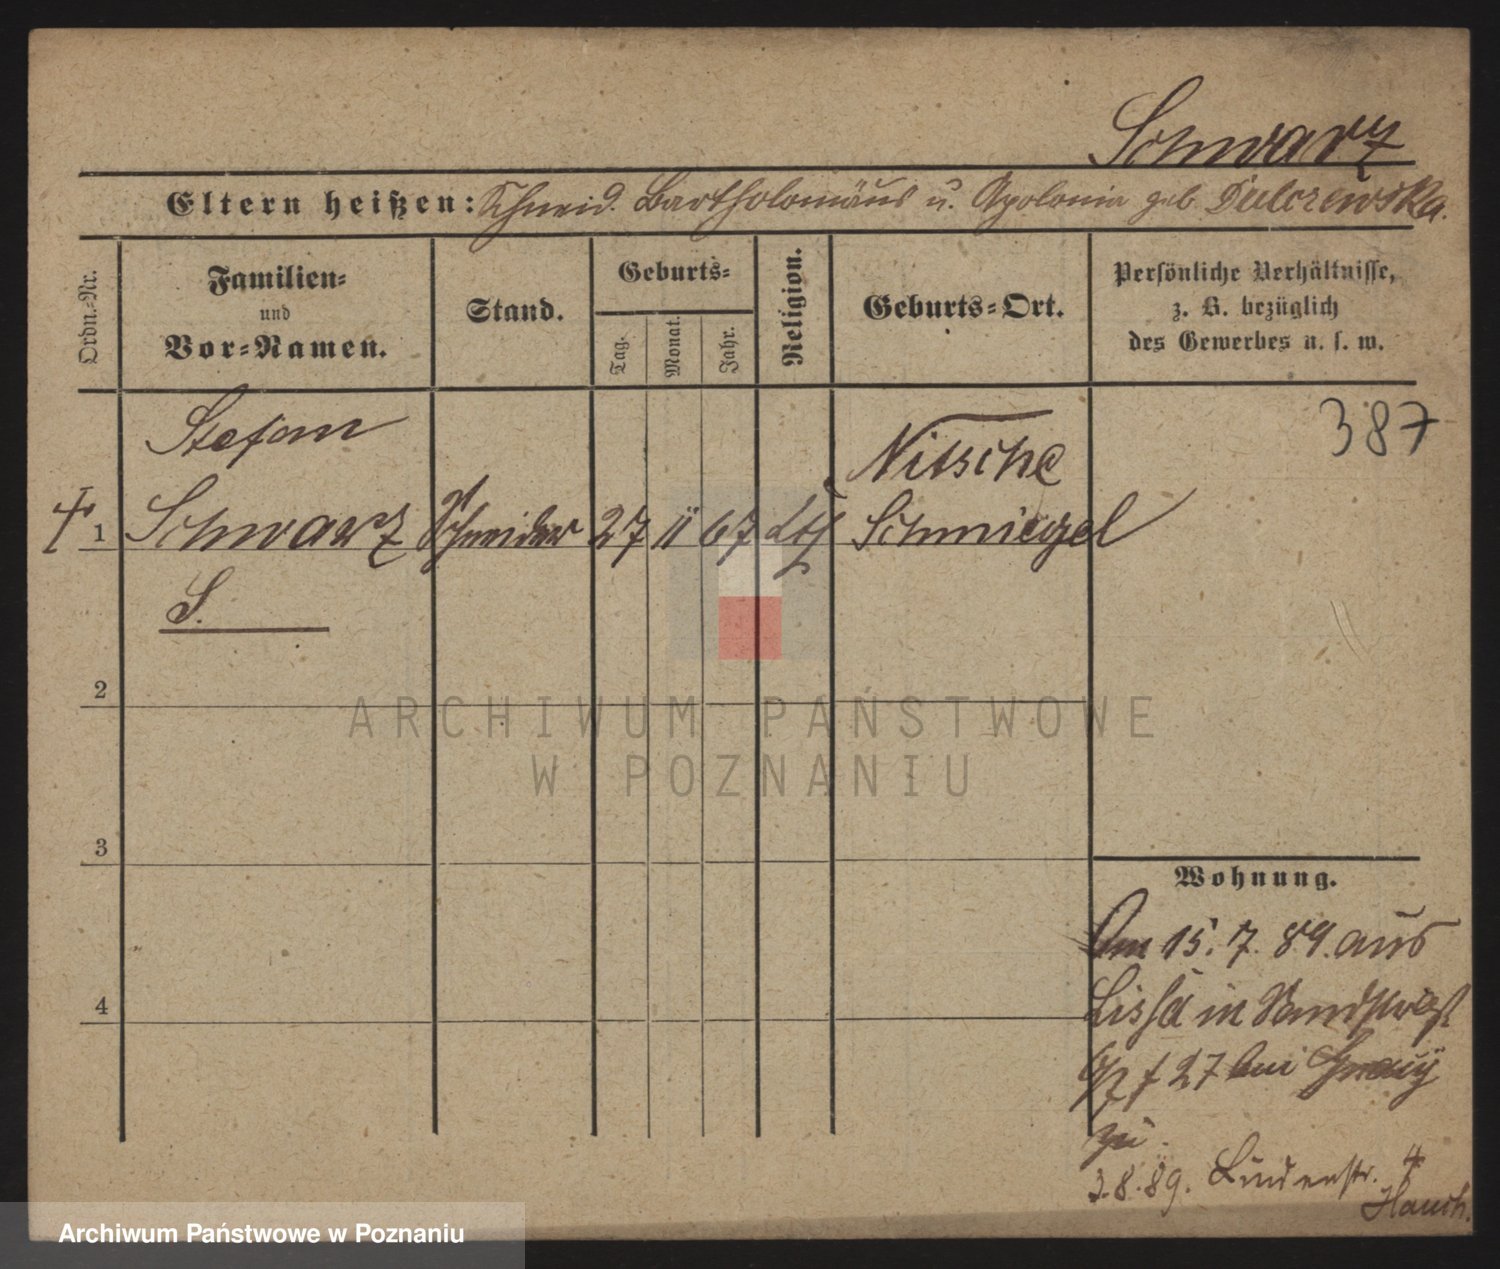 Schwarz
Eltern heißen: Schneid. Bartholomäus u. Apolonia geb. Dulczewska.
Ordn.-Nr.
Familien- und Vor-Namen.
Stand.
Geburts-
Tag.
Monat.
Jahr.
Religion.
Geburts-Ort.
Persönliche Verhältnisse,
z. B. bezüglich
des Gewerbes u. s. w.
387
Stefan
Nitsche
1 Schwarz Schneider 27 11 67 kth Schmiegel
S.
2
3
4
Wohnung.
Am 15. 7. 89. aus
Lissa in
27 bei
zu
3.8.89. Lindenstr. 4
ARCHIWUM PAŃSTWOWE
W POZNANIU
Archiwum Państwowe w Poznaniu